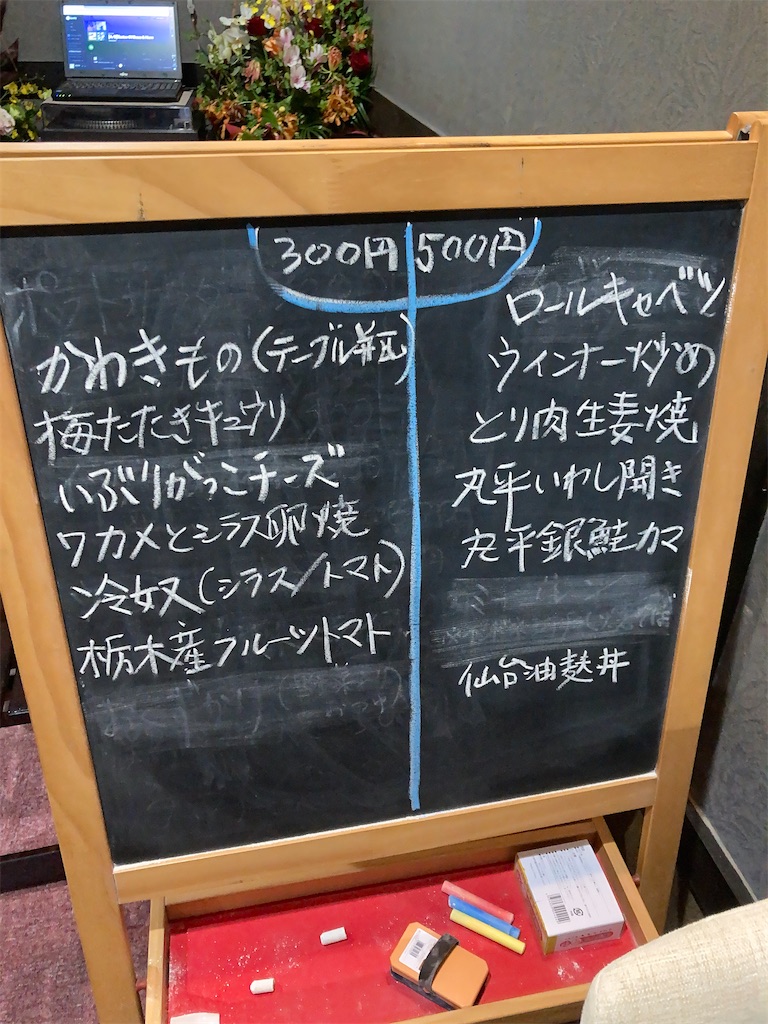 300円
かわきもの(テーブル
梅たたきキュウリ
いぶりがっこチーズ
ワカメとシラス卵焼
冷奴(シラス/トマト)
栃木産フルーツトマト
500円
ロールキャベツ
ウィンナー炒め
とり肉生姜焼
丸平いわし開き
丸平銀鮭カマ
仙台油麩丼